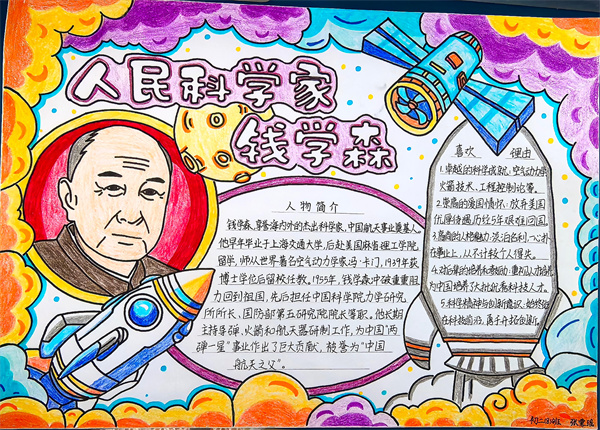 人民科学家
钱学森
人物简介
钱学森，享誉海内外的杰出科学家，中国航天事业奠基人。
他早年毕业于上海交通大学，后赴美国麻省理工学院
留学，师从世界著名空气动力学家冯·卡门，1939年获
博士学位后留校任教。1955年，钱学森冲破重重阻
力回到祖国，先后担任中国科学院力学研究
所所长、国防部第五研究院院长等职。他长期
主持导弹、火箭和航天器研制工作，为中国“两
弹一星”事业作出了巨大贡献，被誉为“中国
航天之父”。
喜欢 理由
1.卓越的科学成就：空气动力学
火箭技术、工程控制论等。
2.崇高的爱国情怀：放弃美国
优厚待遇，历经5年艰难回国。
3.高尚的人格魅力：淡泊名利，一心扑
在事业上，从不计较个人得失。
4.对后辈的培养和教导：重视人才培养
为中国培养了大批优秀科技人才。
5.科学精神与创新意识：始终站
在科技前沿，勇于开拓创新。
初二 班 张